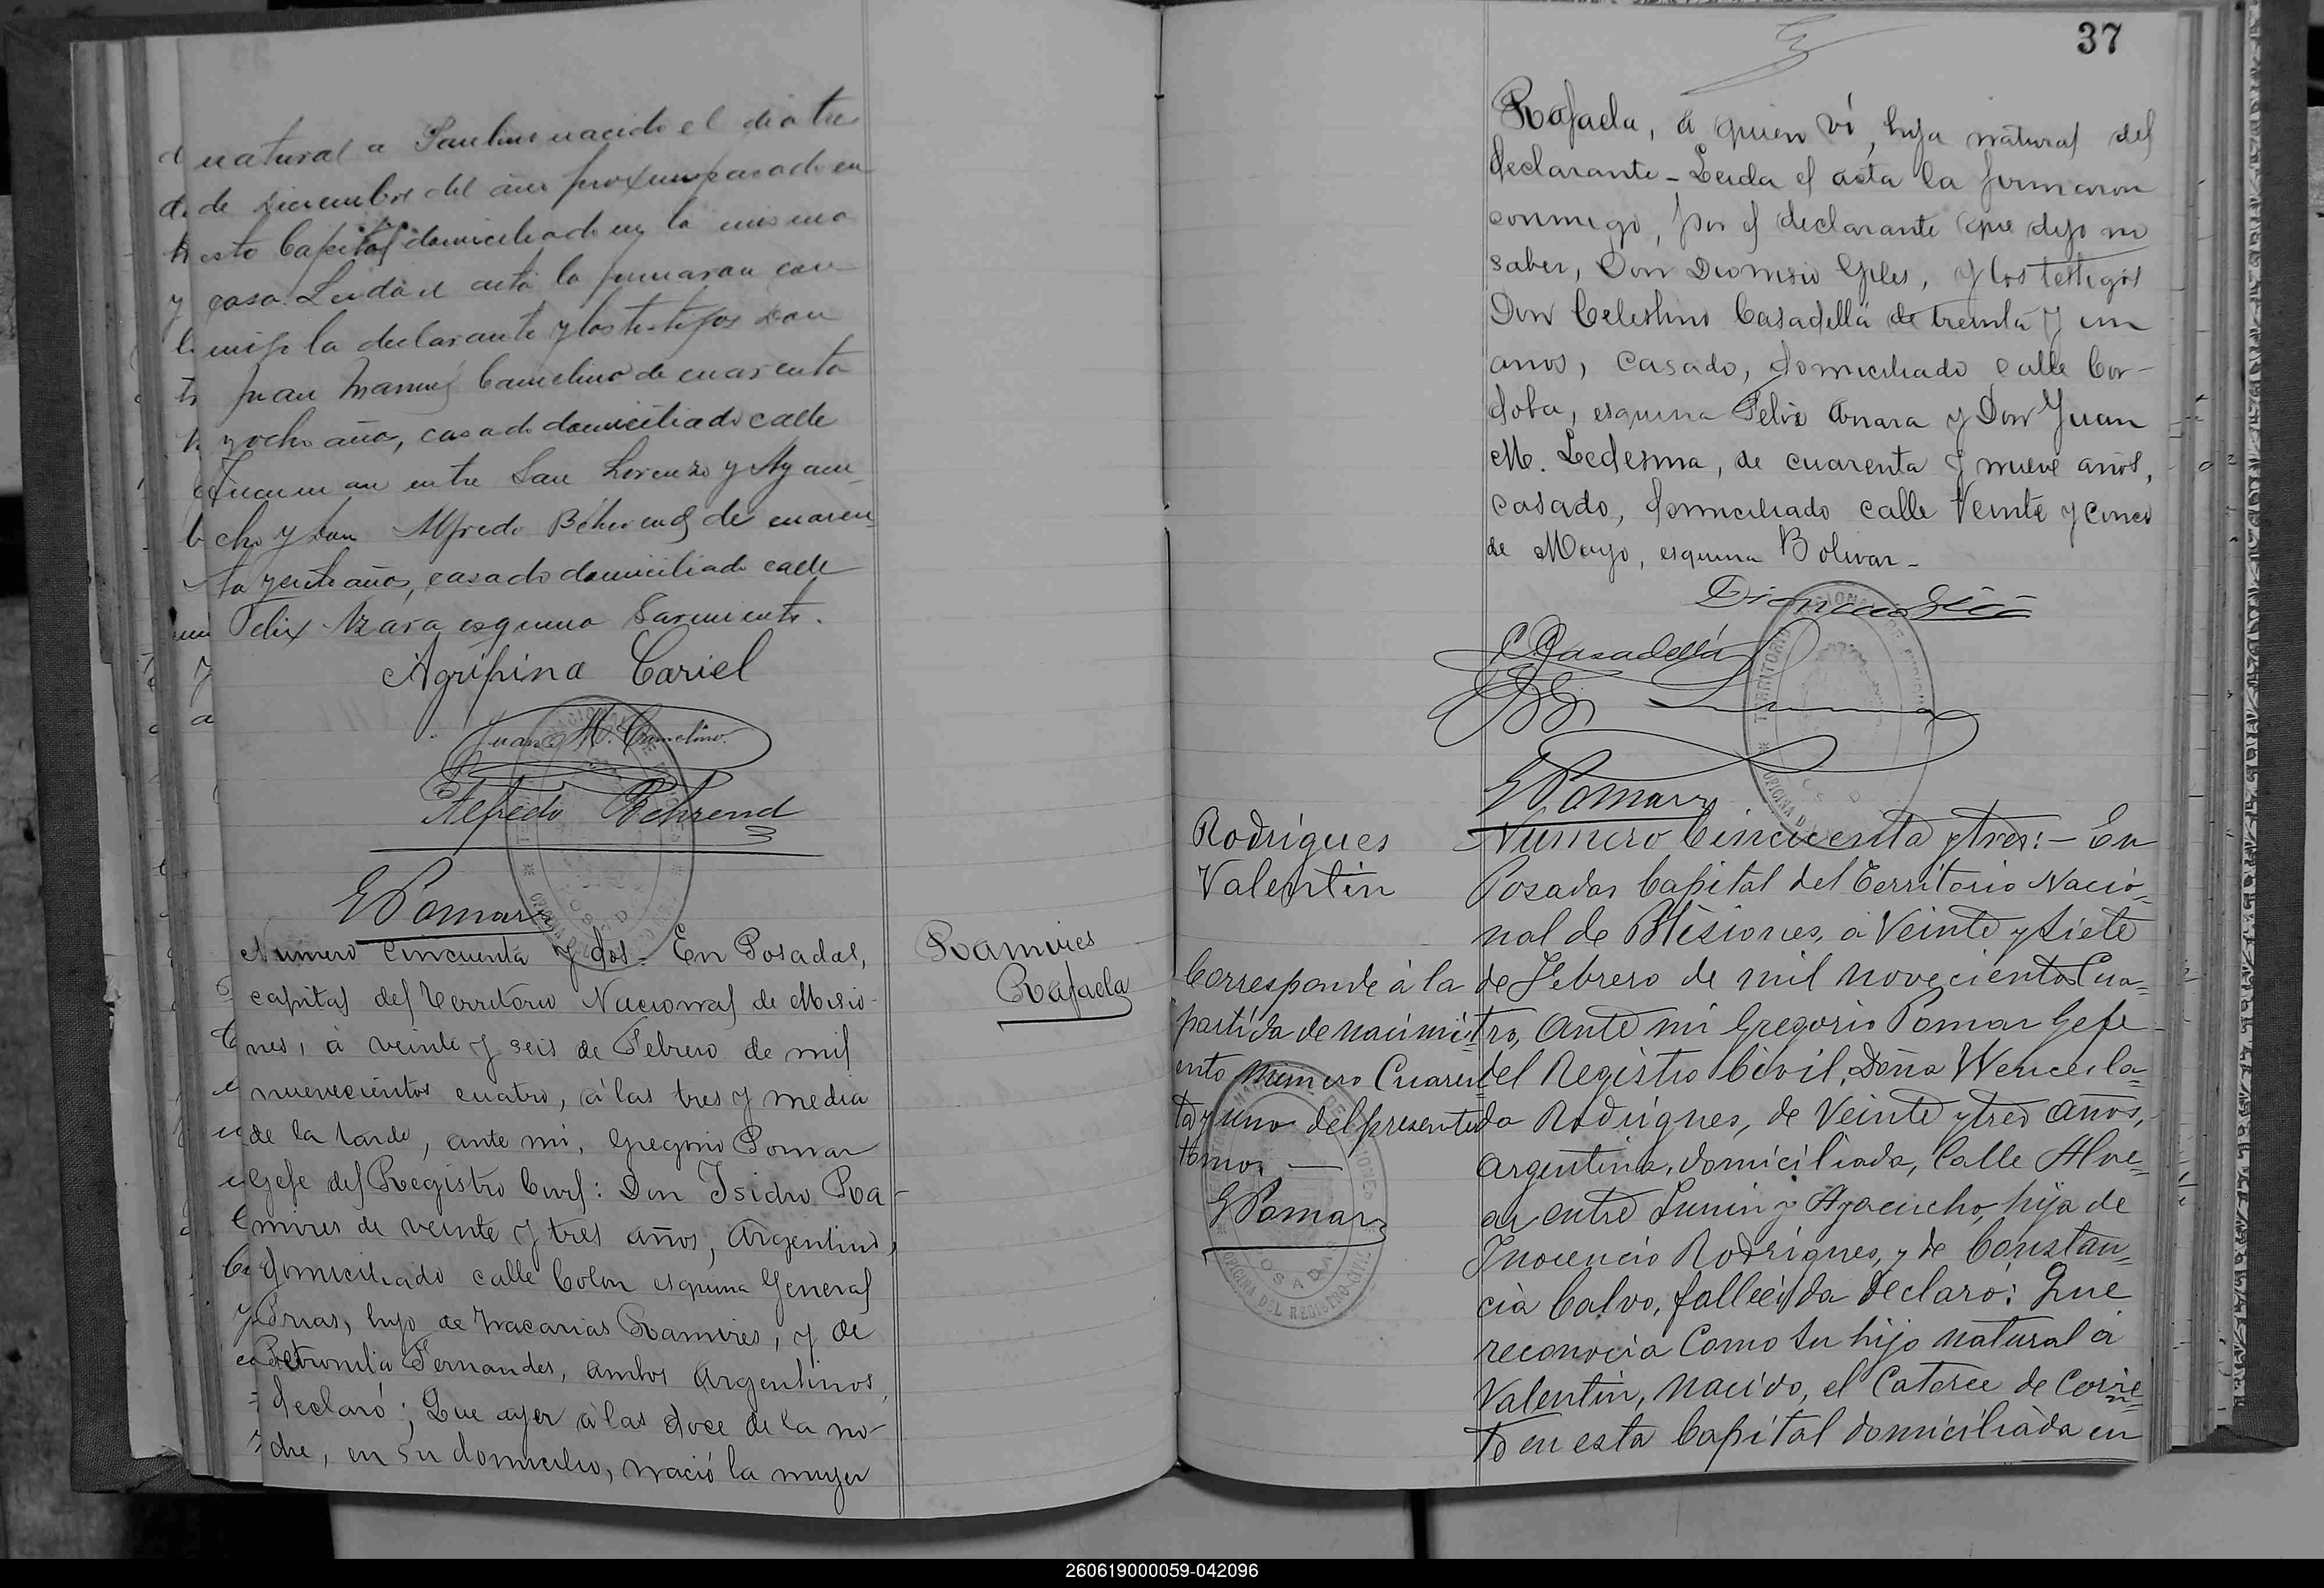 natural a Paulino nacido el dia tres
de Diciembre del año proximo pasado en
esta Capital domiciliado en la misma
casa. Leida el acta la firmaron con-
migo la declarante y los testigos Don
Juan Manuel Camelino de cuarenta
y ocho años, casado domiciliado calle
Tucuman entre San Lorenzo y Ayacu-
cho y Don Alfredo Béhrend de cuaren-
ta y años, casado domiciliado calle
Felix Azára esquina Sarmiento.
Agripina Cariel
Juan M. Camelino.
Alfredo Behrend
G Pomar
Numero cincuenta y dos. En Posadas,
capital del Territorio Nacional de Misio-
nes, á veinte y seis de Febrero de mil
nuevecientos cuatro, á las tres y media
de la tarde, ante mi, Gregorio Pomar
Gefe del Registro Civil: Don Isidro Ra-
mires de veinte y tres años, Argentino,
domiciliado calle Colon esquina General
Frias, hijo de Macarias Ramires, y de
Petronila Fernandes, ambos Argentinos,
declaró; Que ayer á las doce de la no-
che, en su domicilio, nació la muger
Ramires
Rafaela
37
Rafaela, á quien ví, hija natural del
declarante - Leida el acta la firmaron
conmigo, por el declarante que dijo no
saber, Don Dionisio Giles, y los testigos
Don Celestino Casadellá de treinta y un
años, casado, domiciliado calle Cor-
doba, esquina Felix Azara y Don Juan
M. Ledesma, de cuarenta y nueve años,
casado, domiciliado calle Veinte y cinco
de Mayo, esquina Bolivar -
C. Casadellá
G Pomar
Rodrigues
Valentin
Corresponde á la
partida de nacimi-
ento número Cuaren-
ta y uno del presente
tomo. —
G Pomar
OFICINA DEL REGISTRO CIVIL
POSADAS
Numero Cincuenta y tres:- En
Posadas Capital del Territorio Nacio-
nal de Misiones, á Veinte y siete
de Febrero de mil novecientos Cua-
tro, Ante mi Gregorio Pomar Gefe
del Registro Civil, Doña Wencesla-
da Rodrigues, de Veinte y tres años,
Argentina, domiciliada, Calle Alve-
ar entre Junin y Ayacucho, hija de
Inocencio Rodrigues, y de Constan-
cia Calvo, fallecida declaró: Que
reconocia Como su hijo natural á
Valentin, nacido, el Catorce de Corrie-
te en esta Capital domiciliada en